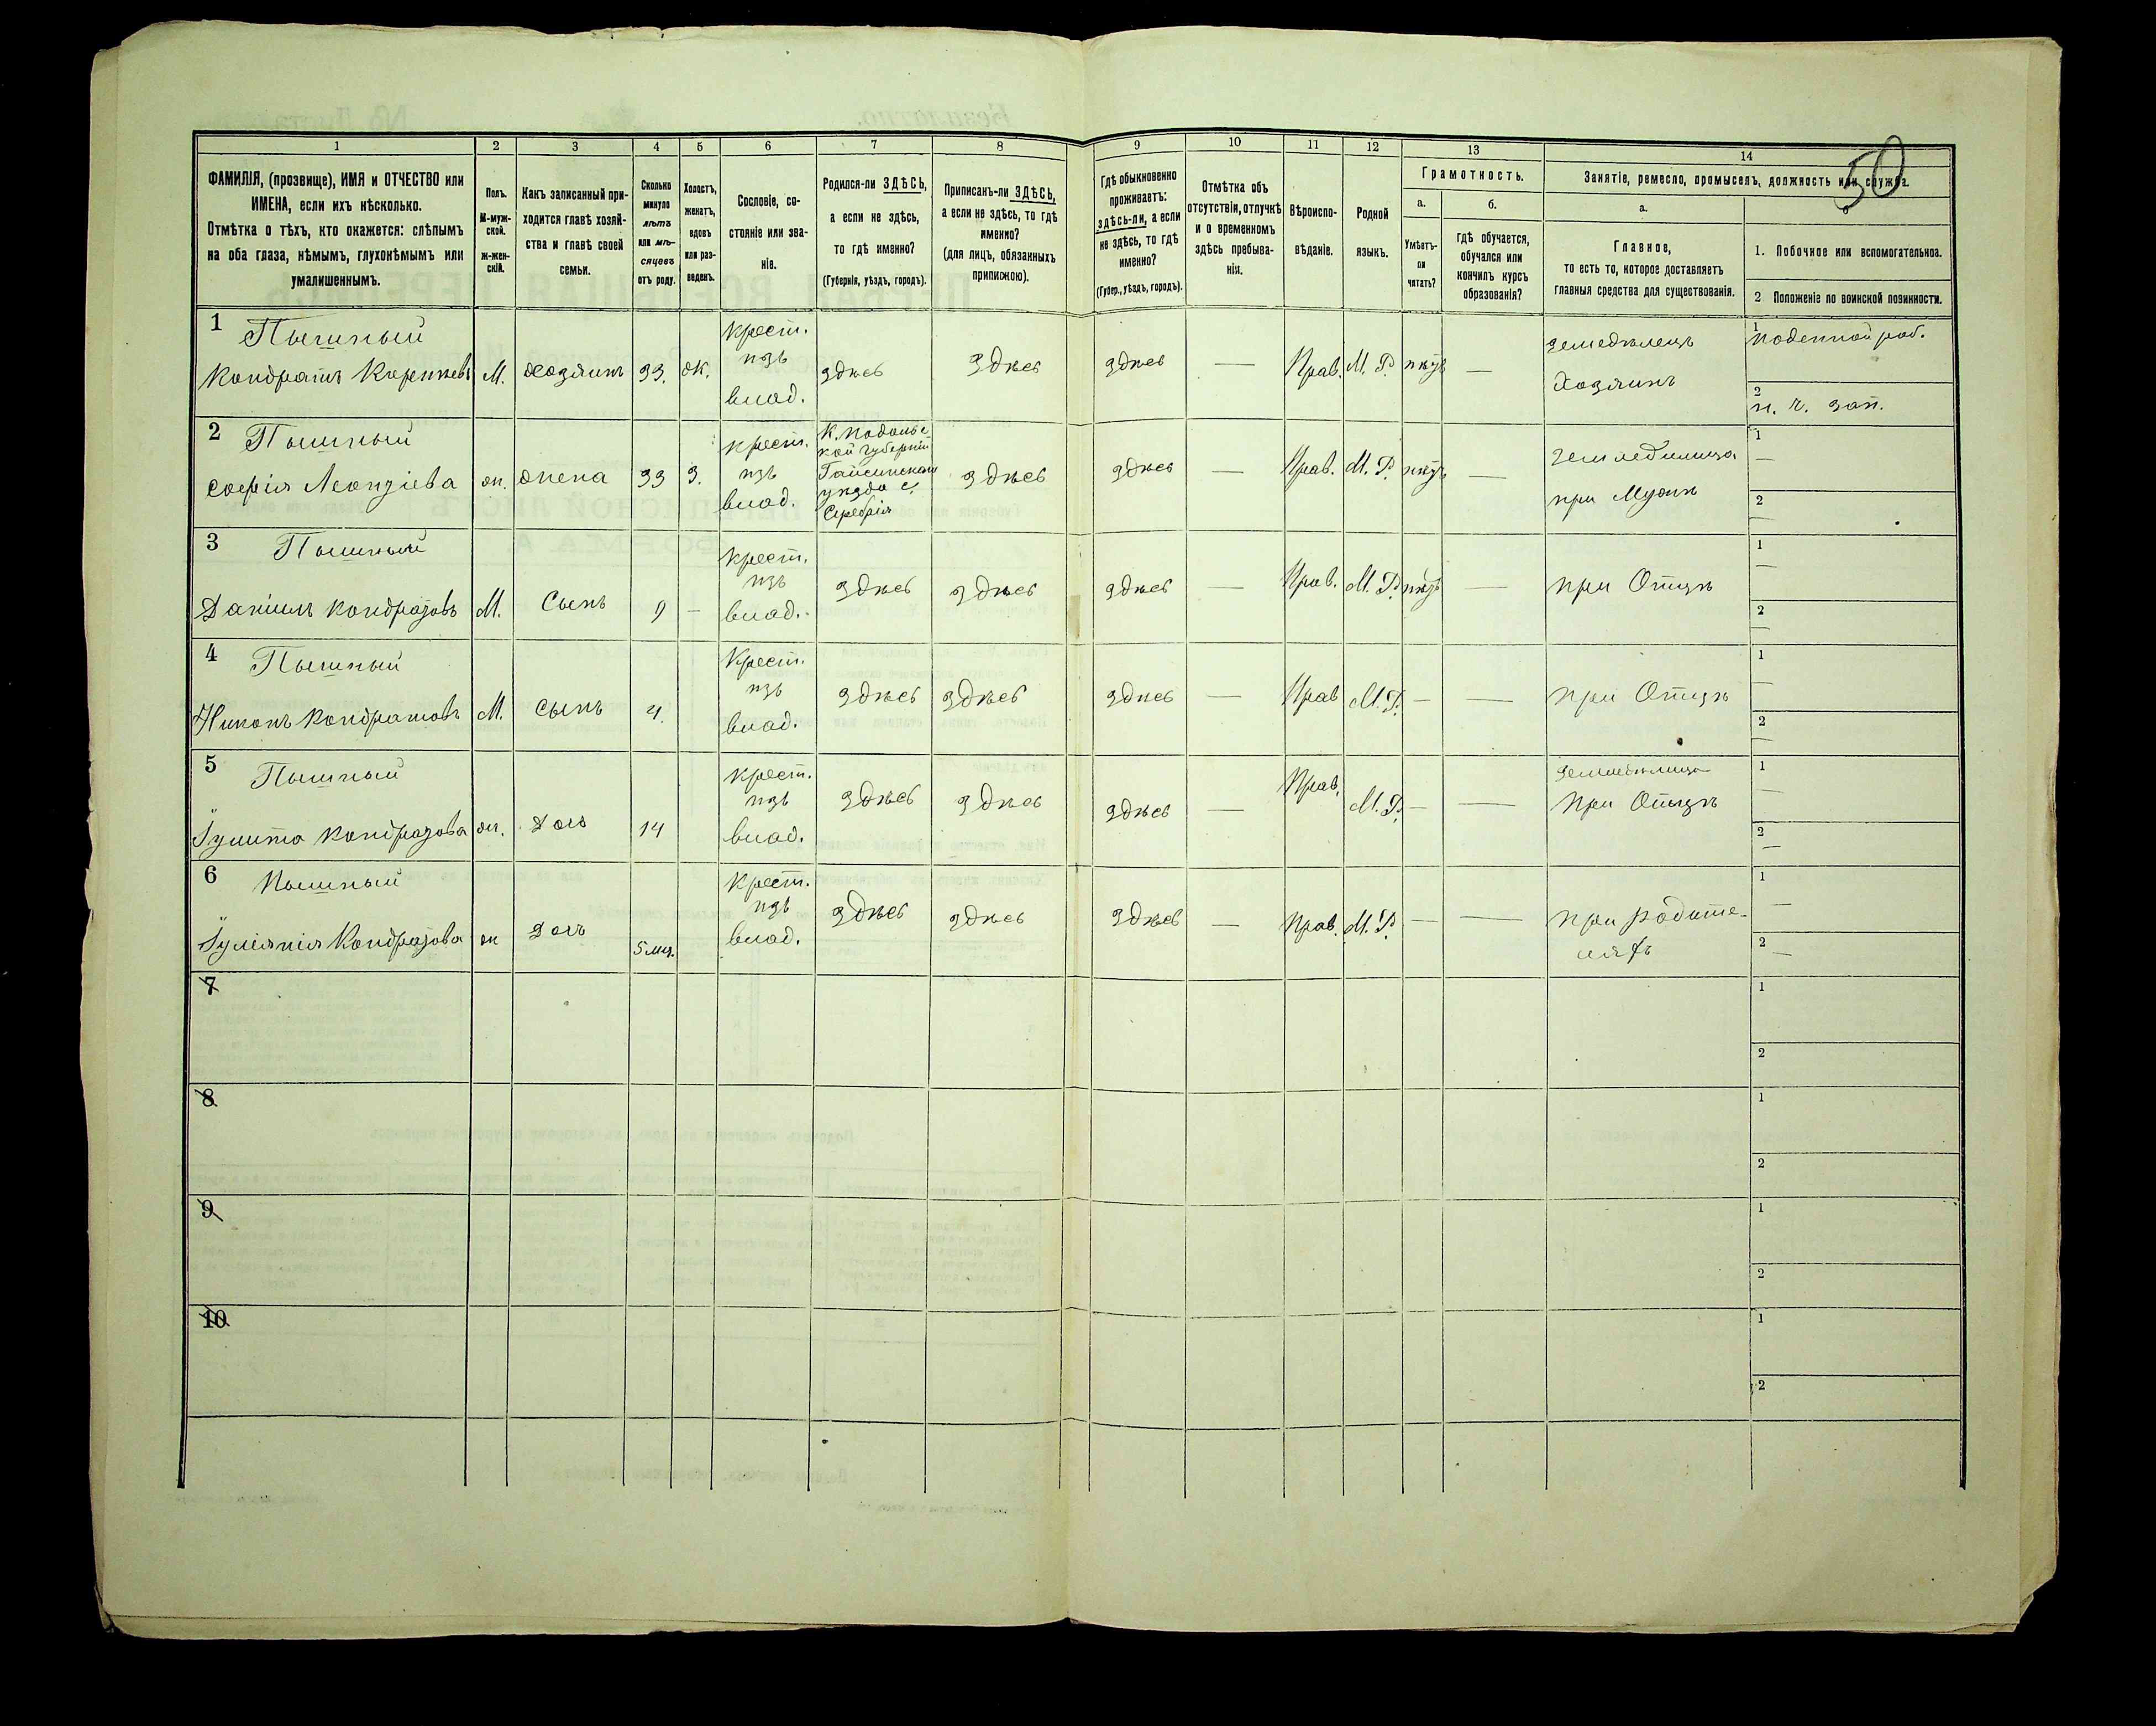 50
1 2 3 4 5 6 7 8 9 10 11 12 13 14
ФАМИЛІЯ, (прозвище), ИМЯ и ОТЧЕСТВО или
ИМЕНА, если ихъ нѣсколько.
Отмѣтка о тѣхъ, кто окажется: слѣпымъ
на оба глаза, нѣмымъ, глухонѣмымъ или
умалишеннымъ.
Полъ.
М-муж-
ской.
ж-жен-
скій.
Какъ записанный при-
ходится главѣ хозяй-
ства и главѣ своей
семьи.
Сколько
минуло
лѣтъ
или мѣ-
сяцевъ
отъ роду.
Холостъ,
женатъ,
вдовъ
или раз-
веденъ.
Сословіе, со-
стояніе или зва-
ніе.
Родился-ли ЗДѢСЬ,
а если не здѣсь,
то гдѣ именно?
(Губернія, уѣздъ, городъ).
Приписанъ-ли ЗДѢСЬ,
а если не здѣсь, то гдѣ
именно?
(для лицъ, обязанныхъ
припискою).
Гдѣ обыкновенно
проживаетъ:
здѣсь-ли, а если
не здѣсь, то гдѣ
именно?
(Губер., уѣздъ, городъ).
Отмѣтка объ
отсутствіи, отлучкѣ
и о временномъ
здѣсь пребыва-
ніи.
Вѣроиспо-
вѣданіе.
Родной
языкъ.
Грамотность.
а.
Умѣетъ-
ли
читать?
б.
гдѣ обучается,
обучался или
кончилъ курсъ
образованія?
Занятіе, ремесло, промыселъ, должность или служба.
а.
Главное,
то есть то, которое доставляетъ
главныя средства для существованія.
1. Побочное или вспомогательное.
2 Положеніе по воинской повинности.
1 Пышный
Кондратъ М. хозяинъ 33. ж.
крест.
изъ
влад.
здѣсь здѣсь здѣсь — Прав. М. Р. —
земледѣлецъ
Хозяинъ
1 поденной раб.
2
2 Пышный
софія Леонтіева ж. жена 33 З.
крест.
изъ
влад.
К. Подольс
кой губерніи
Гайсинскаго
уѣзда с.
Серебрія
здѣсь здѣсь — Прав. М. Р. —
при Мужѣ
1 —
2 —
3 Пышный
Даніилъ М. Сынъ 9 —
крест.
изъ
влад.
здѣсь здѣсь здѣсь — Прав. М. Р. —
при Отцѣ
1 —
2 —
4 Пышный
Никонъ Кондратовъ М. сынъ 4.
Крест.
изъ
влад.
здѣсь здѣсь здѣсь — Прав М. Р. — —
при Отцѣ
1 —
2 —
5 Пышный
Іулита ж. Дочь 14
крест.
изъ
влад.
здѣсь здѣсь здѣсь — Прав. М. Р. — —
при Отцѣ
1 —
2 —
6 Пышный
Іуліянія ж Дочь 5 мѣс.
крест.
изъ
влад.
здѣсь здѣсь здѣсь — Прав. М. Р. — —
при родите-
ляхъ
1 —
2 —
7
1
2
8
1
2
9
1
2
10
1
2